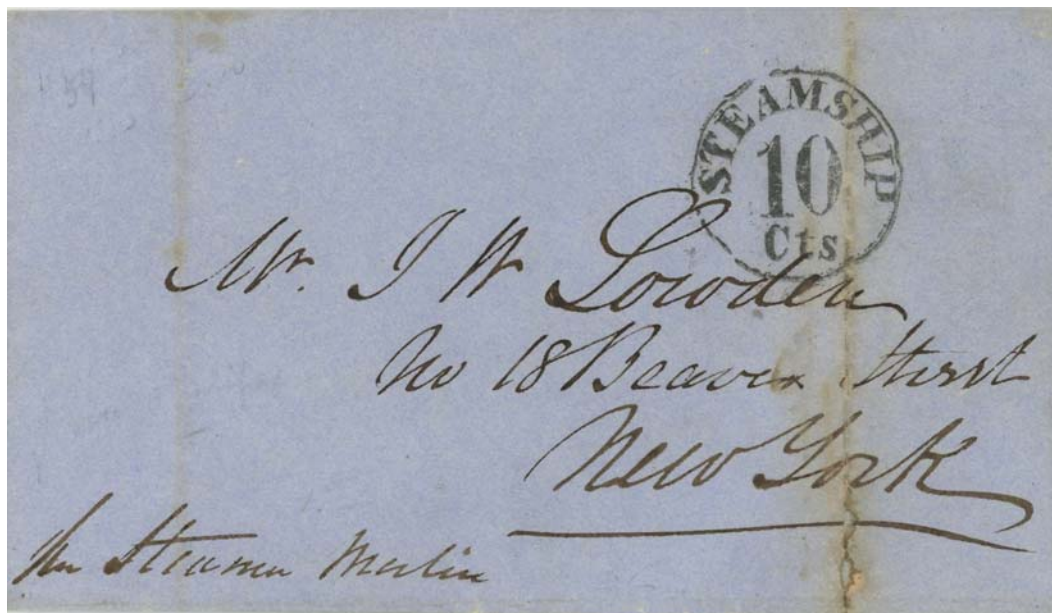 STEAMSHIP
10
Cts
Mr. J W Lowden
No 18 Beaver Street
New York
per Steamer Merlin